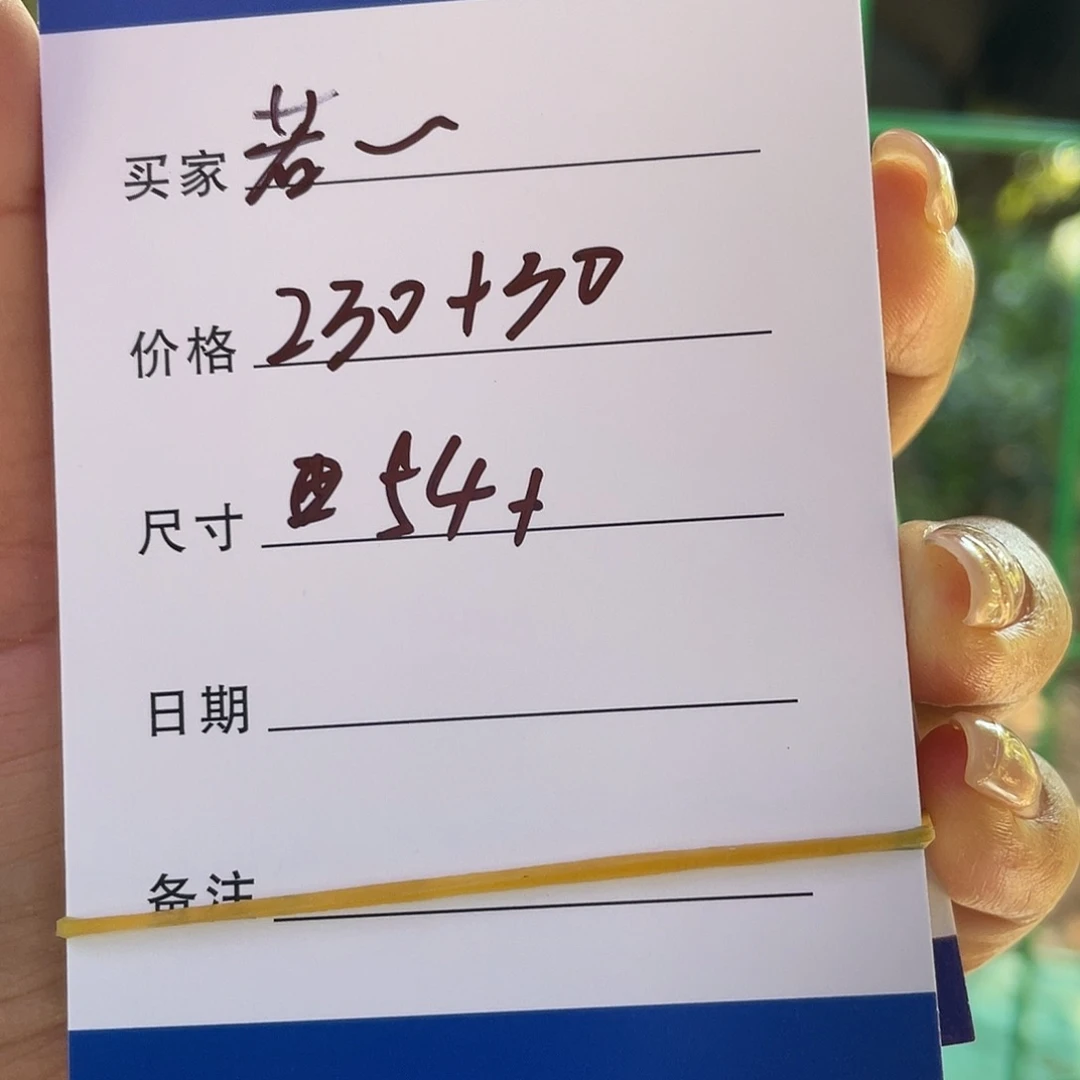 买家 若一
价格 230+30
尺寸 54+
日期
备注